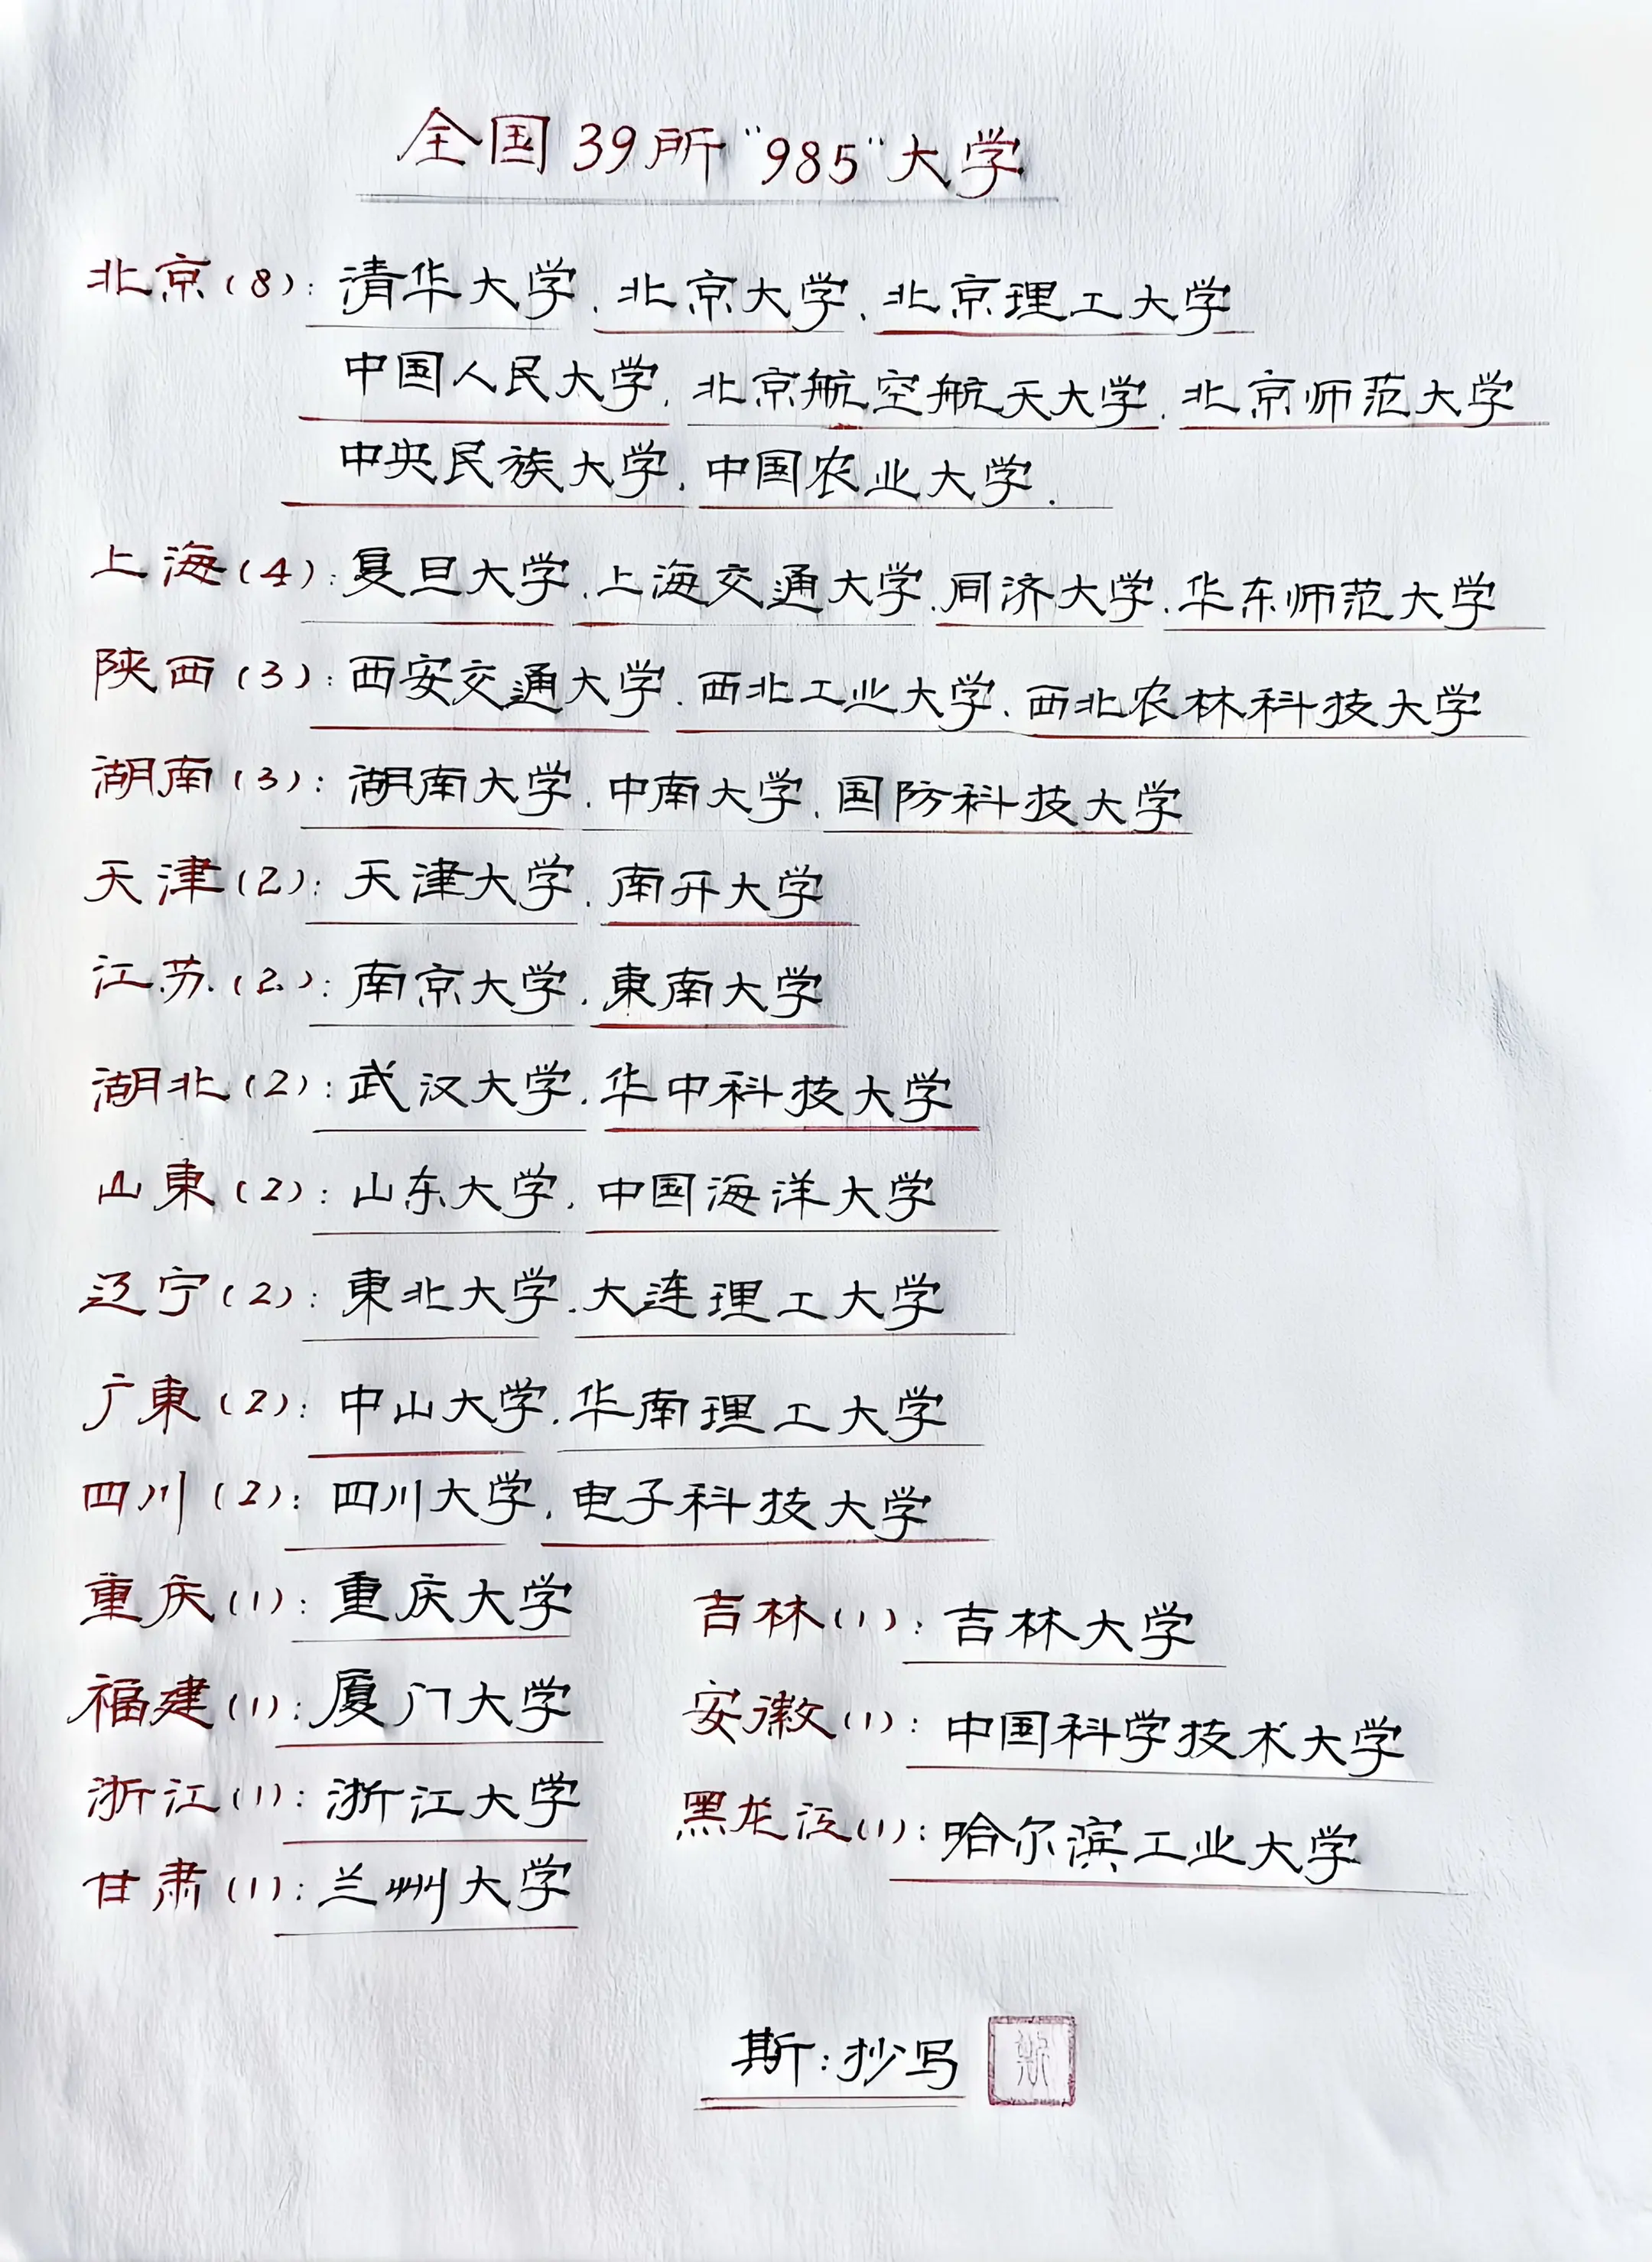 全国39所"985"大学
北京(8):清华大学.北京大学.北京理工大学
中国人民大学.北京航空航天大学.北京师范大学
中央民族大学.中国农业大学.
上海(4):复旦大学.上海交通大学.同济大学.华东师范大学
陕西(3):西安交通大学.西北工业大学.西北农林科技大学
湖南(3):湖南大学.中南大学.国防科技大学
天津(2):天津大学.南开大学
江苏(2):南京大学.東南大学
湖北(2):武汉大学.华中科技大学
山東(2):山东大学.中国海洋大学
辽宁(2):東北大学.大连理工大学
广東(2):中山大学.华南理工大学
四川(2):四川大学.电子科技大学
重庆(1):重庆大学
福建(1):厦门大学
浙江(1):浙江大学
甘肃(1):兰州大学
吉林(1):吉林大学
安徽(1):中国科学技术大学
黑龙江(1):哈尔滨工业大学
斯:抄写
斯